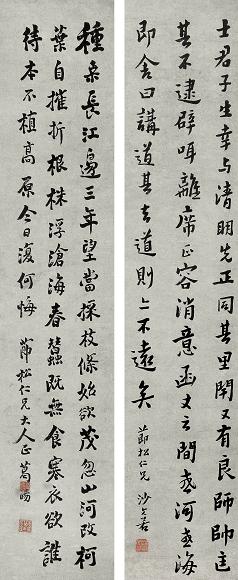 士君子生幸与清明先正其里闬又有良師帥匡
其不逮辟咡離席正容消意函丈之間或河或海
即舍曰講道其去道則亦不遠矣
節松仁兄 沙文若
種桑長江邊三年望當採枝條始欲茂忽山河改柯
葉自摧折根株浮滄海春蠶既無食寒衣欲誰
待本不植高原今日復何悔
節松仁兄大人正 葛暘